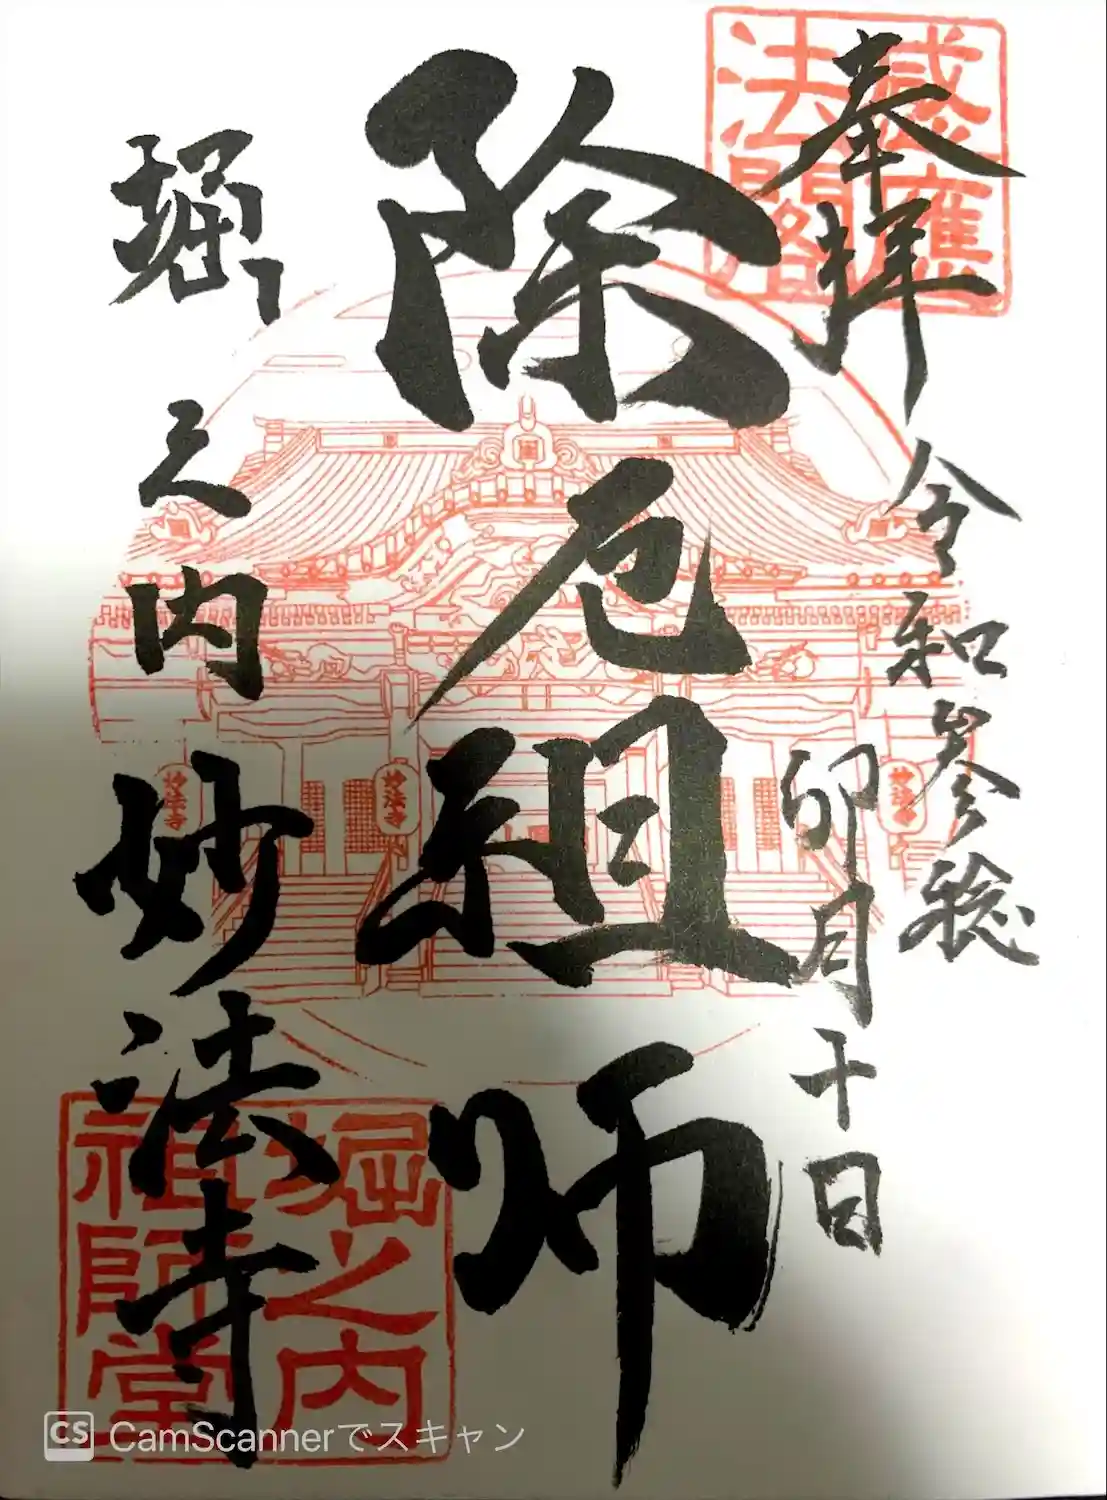 奉拝
令和参稔
卯月十日
除厄祖師
堀之内妙法寺
感應
法閣
妙法寺
妙法寺
妙法寺
堀之内
祖師堂
CS CamScannerでスキャン